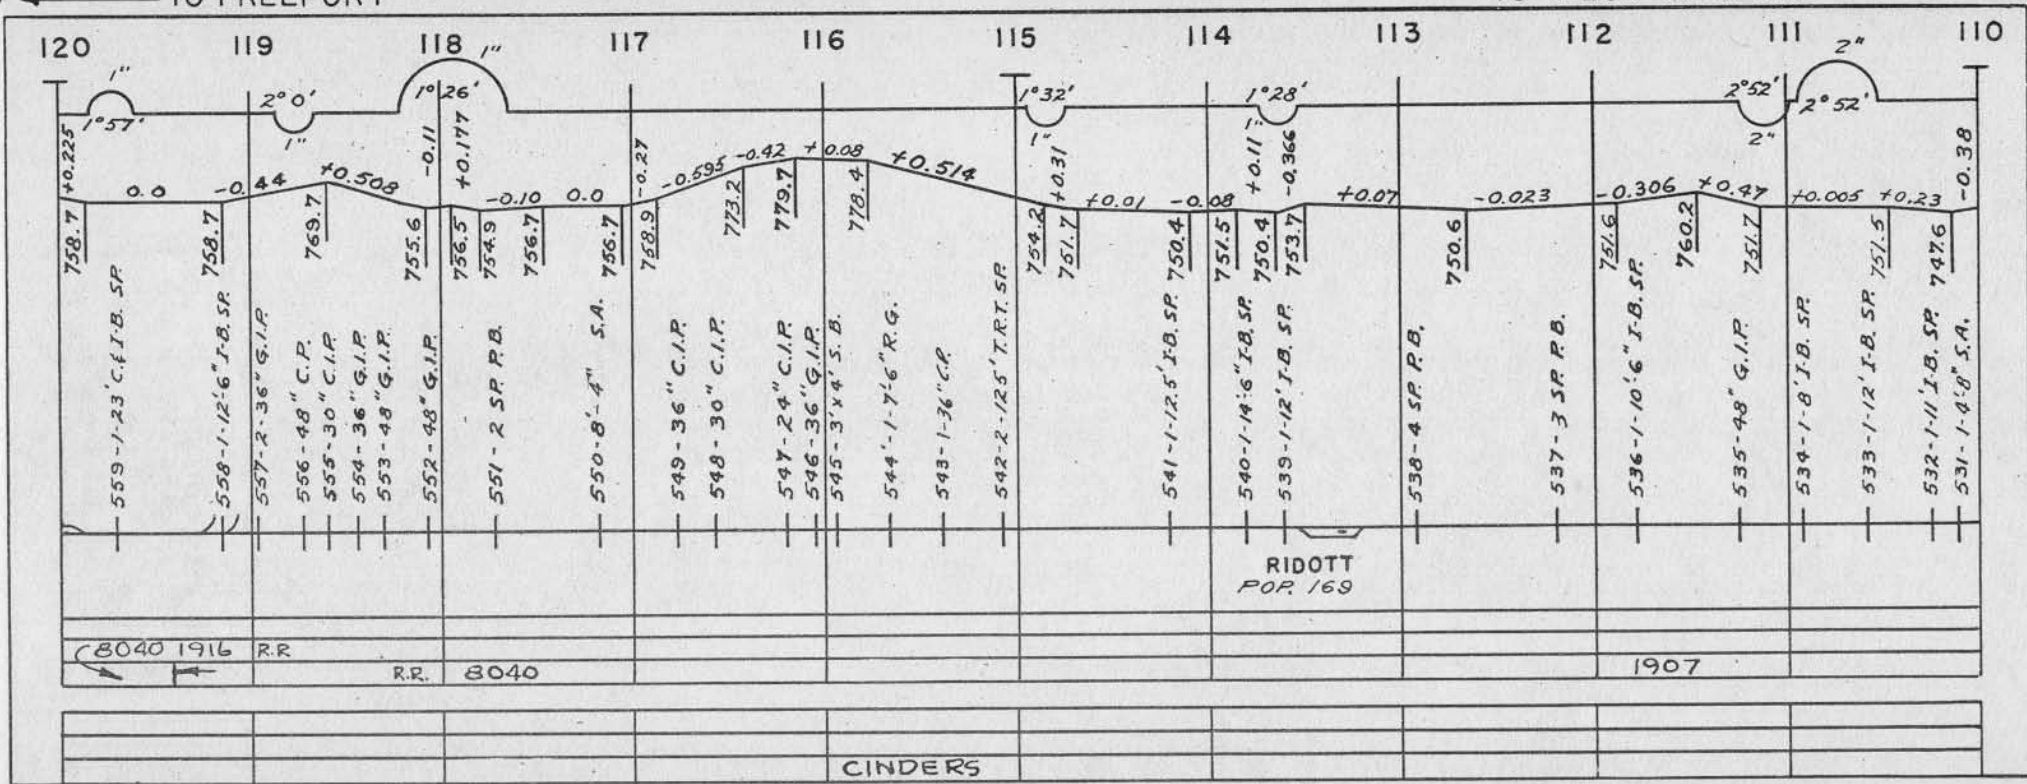 TO FREEPORT
120 119 118 117 116 115 114 113 112 111 110
1" 1°57' 2°0' 1" 1°26' 1" 1°32' 1" 1°28' 1" 2°52' 2" 2°52' 2"
+0.225 0.0 -0.44 +0.508 -0.11 +0.177 -0.10 0.0 -0.27 -0.595 -0.42 +0.08 +0.514 +0.31 +0.01 -0.08 +0.11 -0.366 +0.07 -0.023 -0.306 +0.47 +0.005 +0.23 -0.38
758.7 758.7 769.7 755.6 756.5 754.9 756.7 756.7 758.9 773.2 779.7 778.4 754.2 751.7 750.4 751.5 750.4 753.7 750.6 751.6 760.2 751.7 751.5 747.6
559-1-23' C.& I-B. SP.
558-1-12'-6" I-B. SP.
557-2-36" G.I.P.
556-48" C.P.
555-30" C.I.P.
554-36" G.I.P.
553-48" G.I.P.
552-48" G.I.P.
551-2 SP. P.B.
550-8'-4" S.A.
549-36" C.I.P.
548-30" C.I.P.
547-24" C.I.P.
546-36" G.I.P.
545-3'x4' S.B.
544'-1-7'-6" R.G.
543-1-36" C.P.
542-2-125' T.R.T. SP.
541-1-12.5' I-B. SP.
540-1-14'-6" I-B. SP.
539-1-12' I-B. SP.
538-4 SP. P.B.
537-3 SP. P.B.
536-1-10'-6" I-B. SP.
535-48" G.I.P.
534-1-8' I-B. SP.
533-1-12' I-B. SP.
532-1-11' I-B. SP.
531-1-4'-8" S.A.
RIDOTT
POP. 169
8040 1916 R.R
R.R. 8040 1907
CINDERS